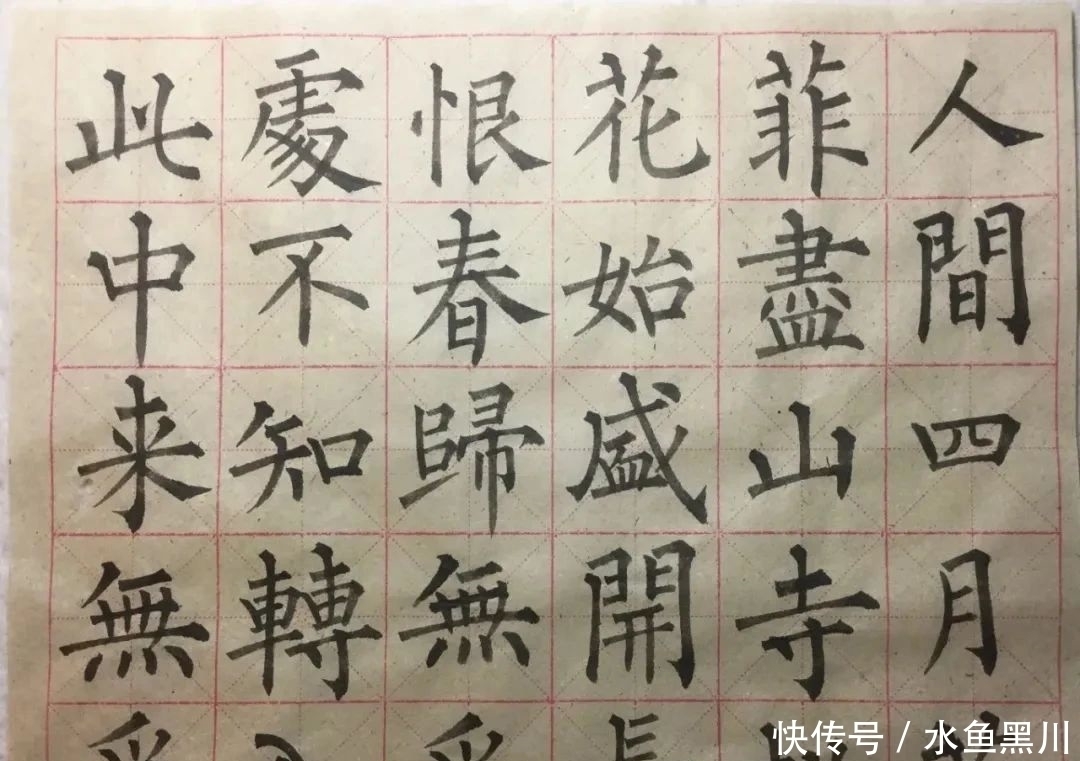 人間四月
菲盡山寺
花始盛開
恨春歸無
處不知轉
此中来無
快传号 / 水鱼黑川